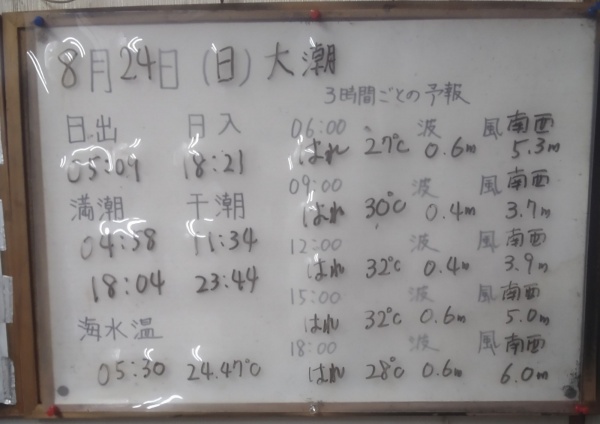 8月24日(日)大潮
3時間ごとの予報
日出 日入
05:09 18:21
満潮 干潮
04:38 11:34
18:04 23:44
海水温
05:30 24.47℃
06:00 波 風 南西
はれ 27℃ 0.6m 5.3m
09:00 波 風 南西
はれ 30℃ 0.4m 3.7m
12:00 波 風 南西
はれ 32℃ 0.4m 3.9m
15:00 波 風 南西
はれ 32℃ 0.6m 5.0m
18:00 波 風 南西
はれ 28℃ 0.6m 6.0m